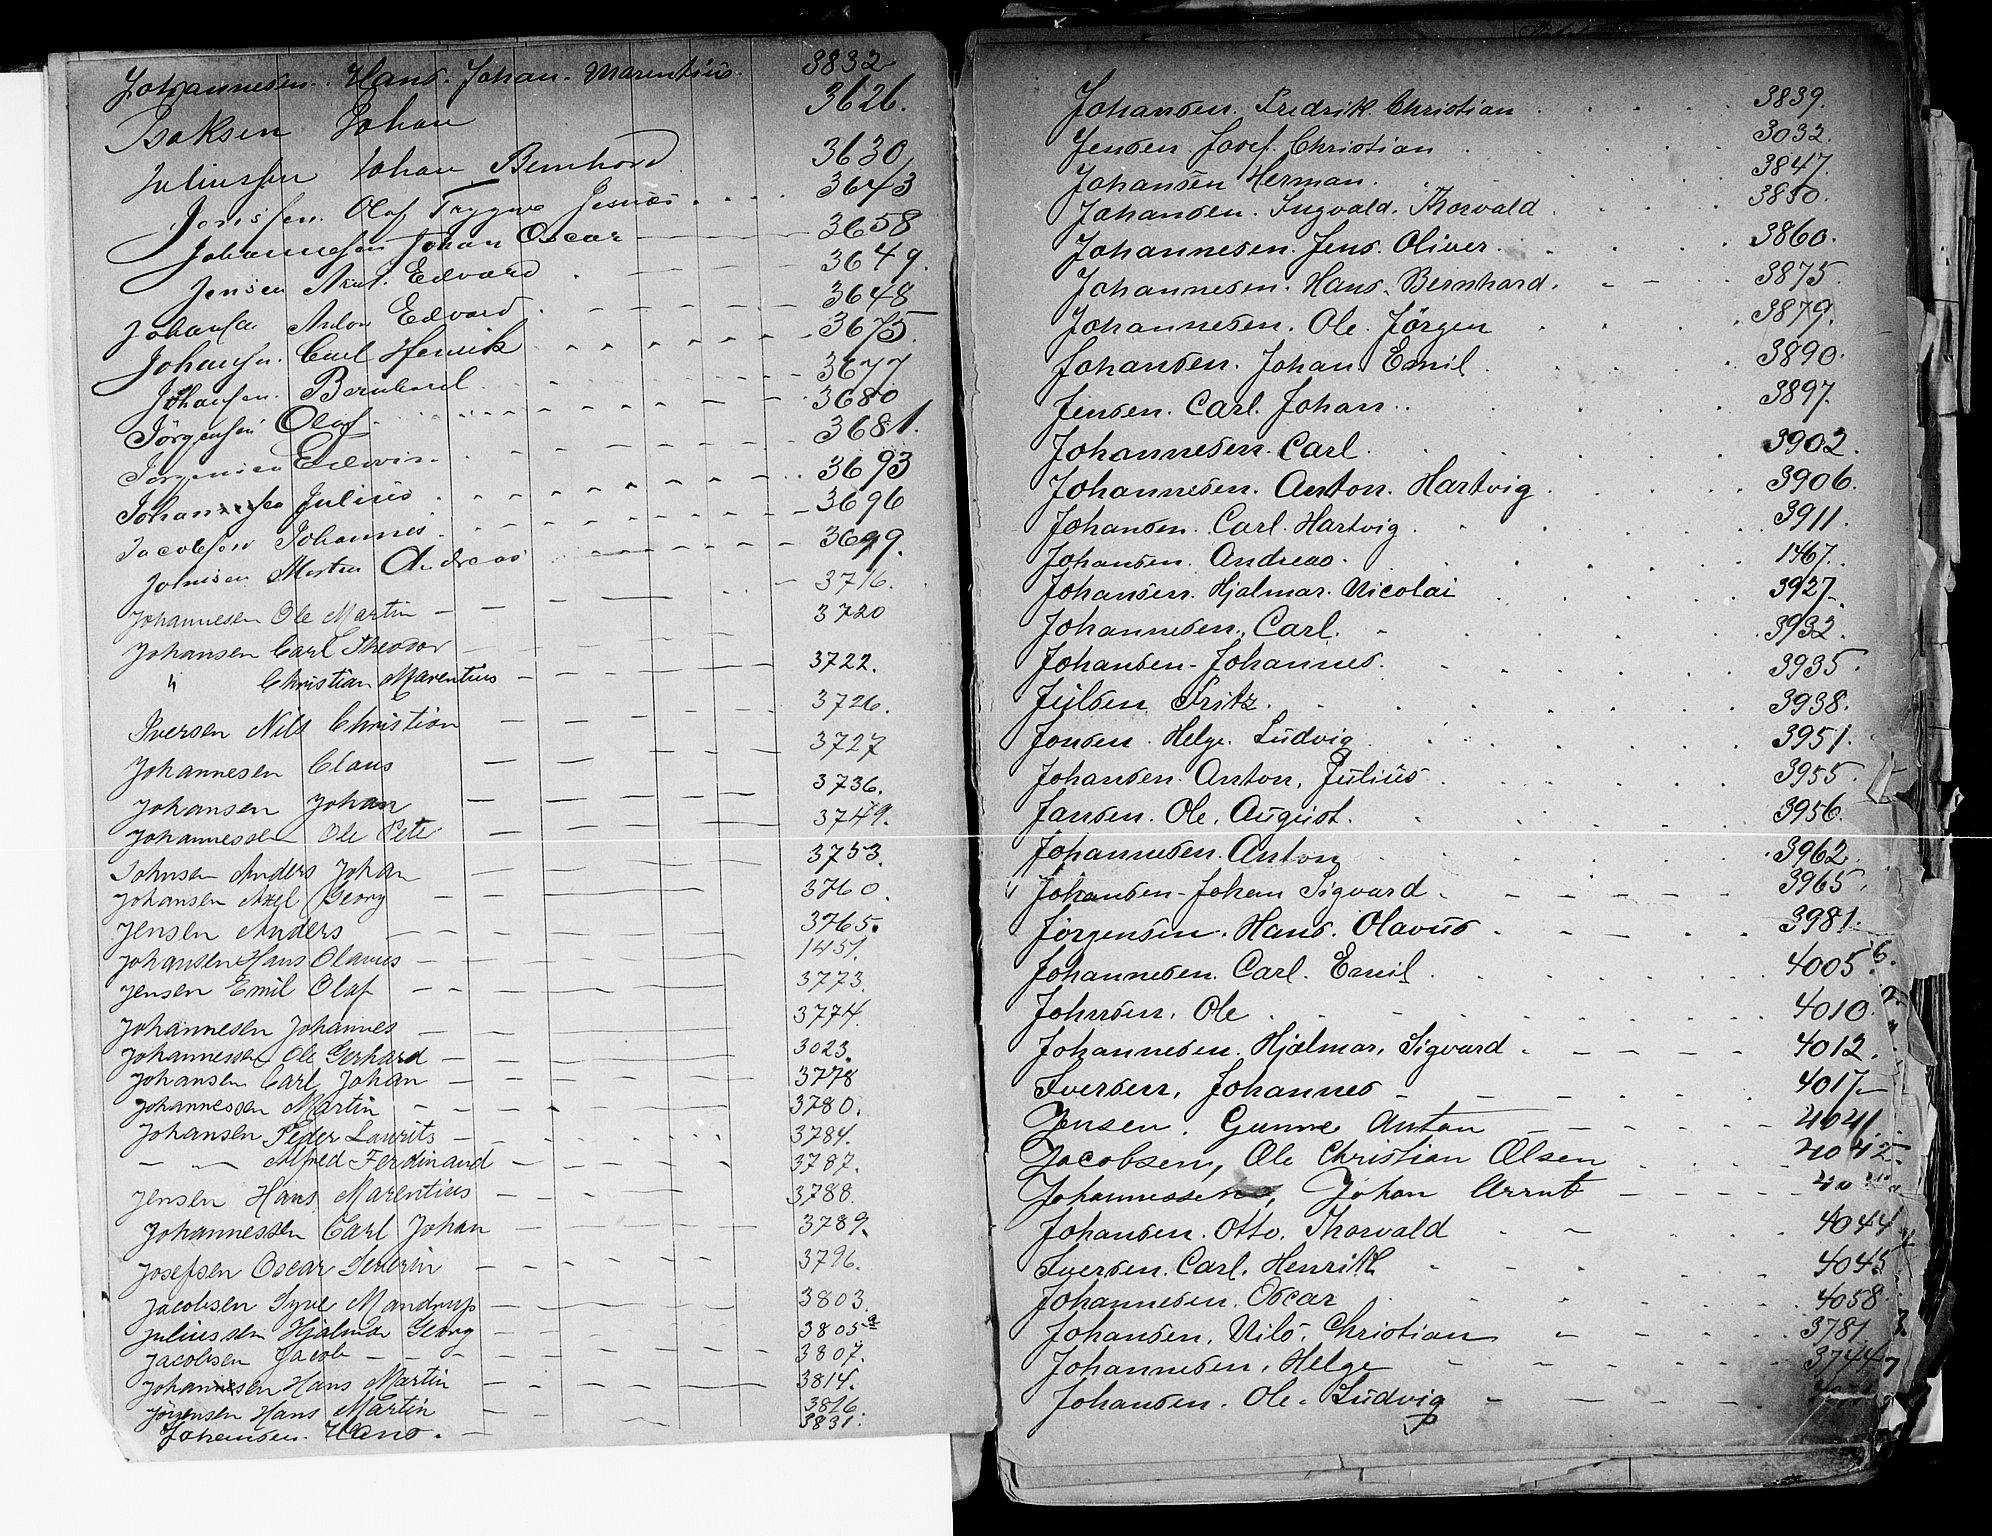 Johannesen. Hans. Johan. Marentius. 3832
Isaksen Johan 3626.
Juliussen Johan Bernhard 3630
Jonssen. Olaf Trygve Jesnæs 3643
Johannesen Johan Oscar 3658
Jensen Arnt. Edvard 3649.
Johansen Anton Edvard 3648
Johansen. Carl Henrik 3675.
Johansen. Bernhard 3677
Jörgensen Olaf. 3680
Jörgensen Edwin 3681.
Johansen Julius 3693
Jacobsen Johannes 3696
Johnsen Morten Andreas 3699.
Johannesen Ole Martin 3716.
Johansen Carl Theodor 3720
" Christian Marentius 3722.
Iversen Nils Christian 3726.
Johannesen Claus 3727
Johansen Johan 3736.
Johannessen Ole Peter 3749.
Johnsen Anders Johan 3753.
Johansen Axel Georg 3760.
Jensen Anders 3765.
Johansen Hans Olavus 1451.
Jensen Emil Olaf 3773.
Johannesen Johannes 3774.
Johannessen Ole Gerhard 3023.
Johansen Carl Johan 3778
Johannessen Martin 3780.
Johansen Peder Laurits 3784.
— " — Alfred Ferdinand 3787.
Jensen Hans Marentius 3788.
Johannessen Carl Johan 3789.
Josefsen Oscar Severin 3796.
Jacobsen Syve Mandrup 3803.
Juliussen Hjalmar Georg 3805 a
Jacobsen Jacob 3807.
Johansen Hans Martin 3814.
Jörgensen Hans Martin 3826
Johansen. Hans. 3831.
Johansen. Fredrik. Christian 3839.
Jensen. Josef. Christian 3032.
Johansen Herman. 3847.
Johansen. Ingvald. Thorvald 3850.
Johannesen. Jens. Oliver. 3860.
Johannesen. Hans. Bernhard. 3875.
Johannesen. Ole. Jörgen 3879.
Johansen. Johan. Emil 3890.
Jensen. Carl. Johan 3897.
Johannesen. Carl. 3902.
Johannesen. Anton. Hartvig 3906.
Johansen. Carl. Hartvig. 3911.
Johansen. Andreas. 1467.
Johansen. Hjalmar. Nicolai 3927.
Johannesen. Carl. 3932.
Johansen - Johannes. 3935.
Juilsen Fritz. 3938.
Jonsen. Helge. Ludvig 3951.
Johansen. Anton. Julius 3955.
Jansen. Ole. August. 3956.
Johannesen. Anton 3962.
Johansen - Johan Sigvard. 3965.
Jørgensen. Hans. Olavus 3981.
Johannesen. Carl. Emil. 4005.
Johnsen. Ole 4010.
Johannesen. Hjalmar. Sigvard 4012.
Iversen. Johannes 4017
Jensen. Gunne Anton 4041
Jacobsen, Ole Christian Olsen 4042
Johannessen, Johan Arnt
Johansen. Otto. Thorvald 4044
Iversen. Carl. Henrik 4045
Johannesen. Oscar 4058.
Johansen. Nils. Christian 3781
Johannesen. Helge 3744
Johansen. Ole. Ludvig